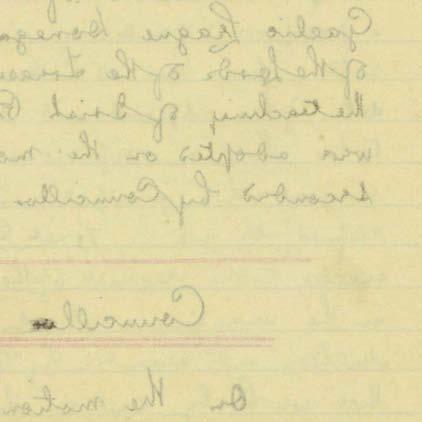 Gaelic League Donega
of the Lords of the Treasu
the teaching of Irish
was adopted on the mo
seconded by Councillor
Councillor
On the motion